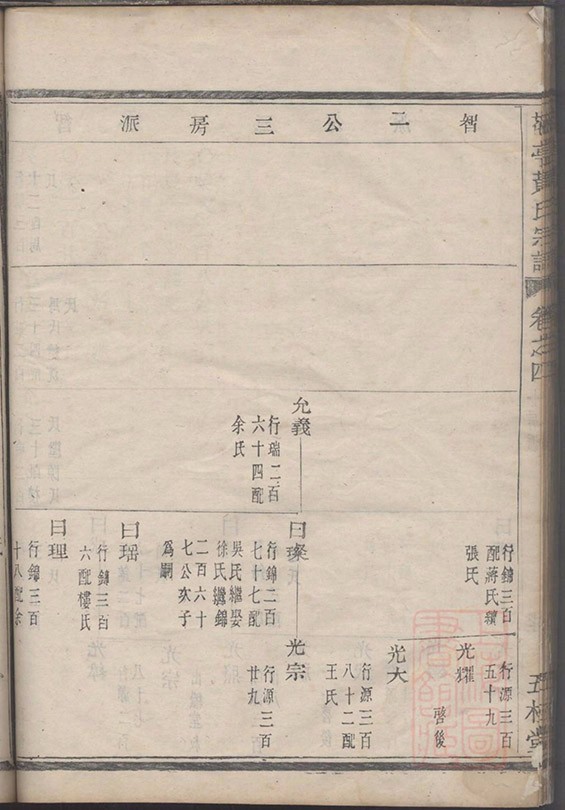 智二公三房派
黃氏宗譜
卷之四
允義
行瑞二百
六十四配
余氏
行錦三百
配蔣氏續
張氏
曰璨
行錦二百
七十七配
吳氏繼娶
徐氏繼錦
二百六十
七公次子
為嗣
曰瑶
行錦三百
六配樓氏
曰理
行錦三百
十八配余
光耀
行源三百
五十九
啓後
光大
行源三百
八十二配
王氏
光宗
行源三百
廿九